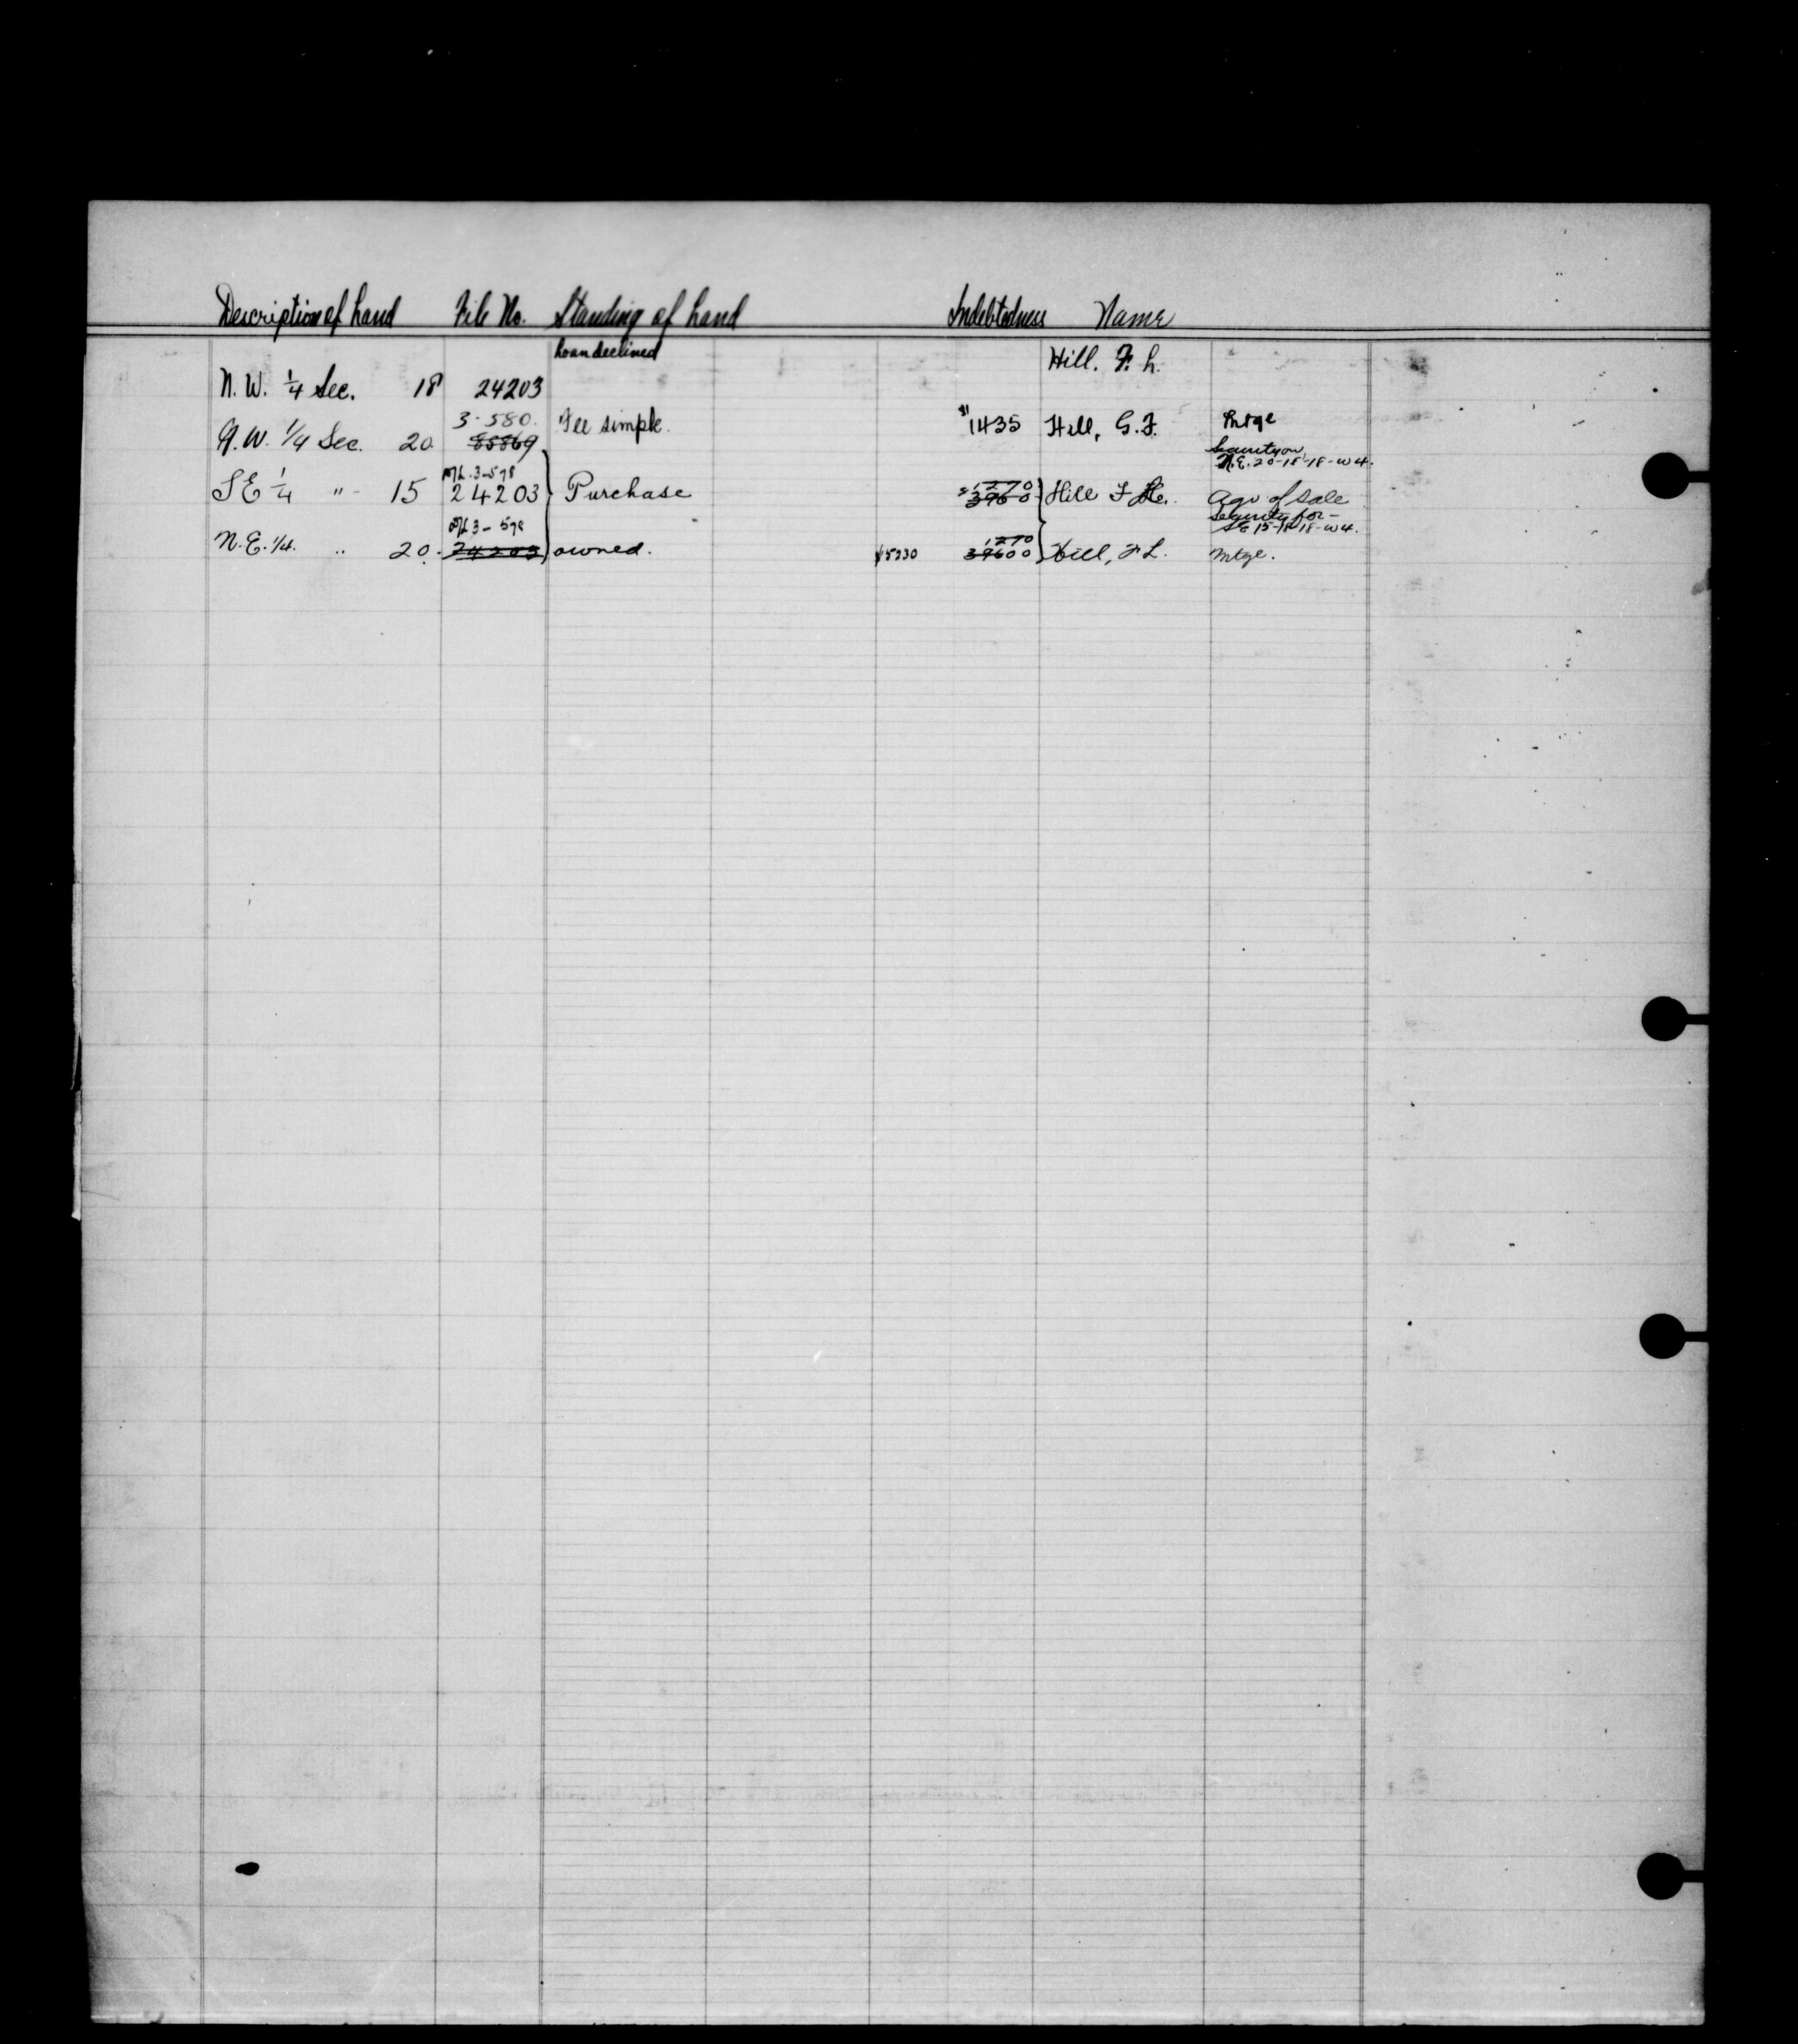 Description of Land File No. Standing of Land Indebtedness Name
Loan declined Hill. F. L.
N. W. 1/4 Sec. 18 24203
3-580. Fee simple. $1435 Hill, G. F. Mtge
N. W. 1/4 Sec. 20 85869
Security on
N.E. 20-18-18-W4.
3-578 1270
S E 1/4 " 15 24203 Purchase $3960 Hill F L. Agr of Sale
Security for
SE 15-18-18-W4.
3-578 1270
N.E. 1/4. " 20. 24203 owned. $5230 39600 Hill, F L. Mtge.